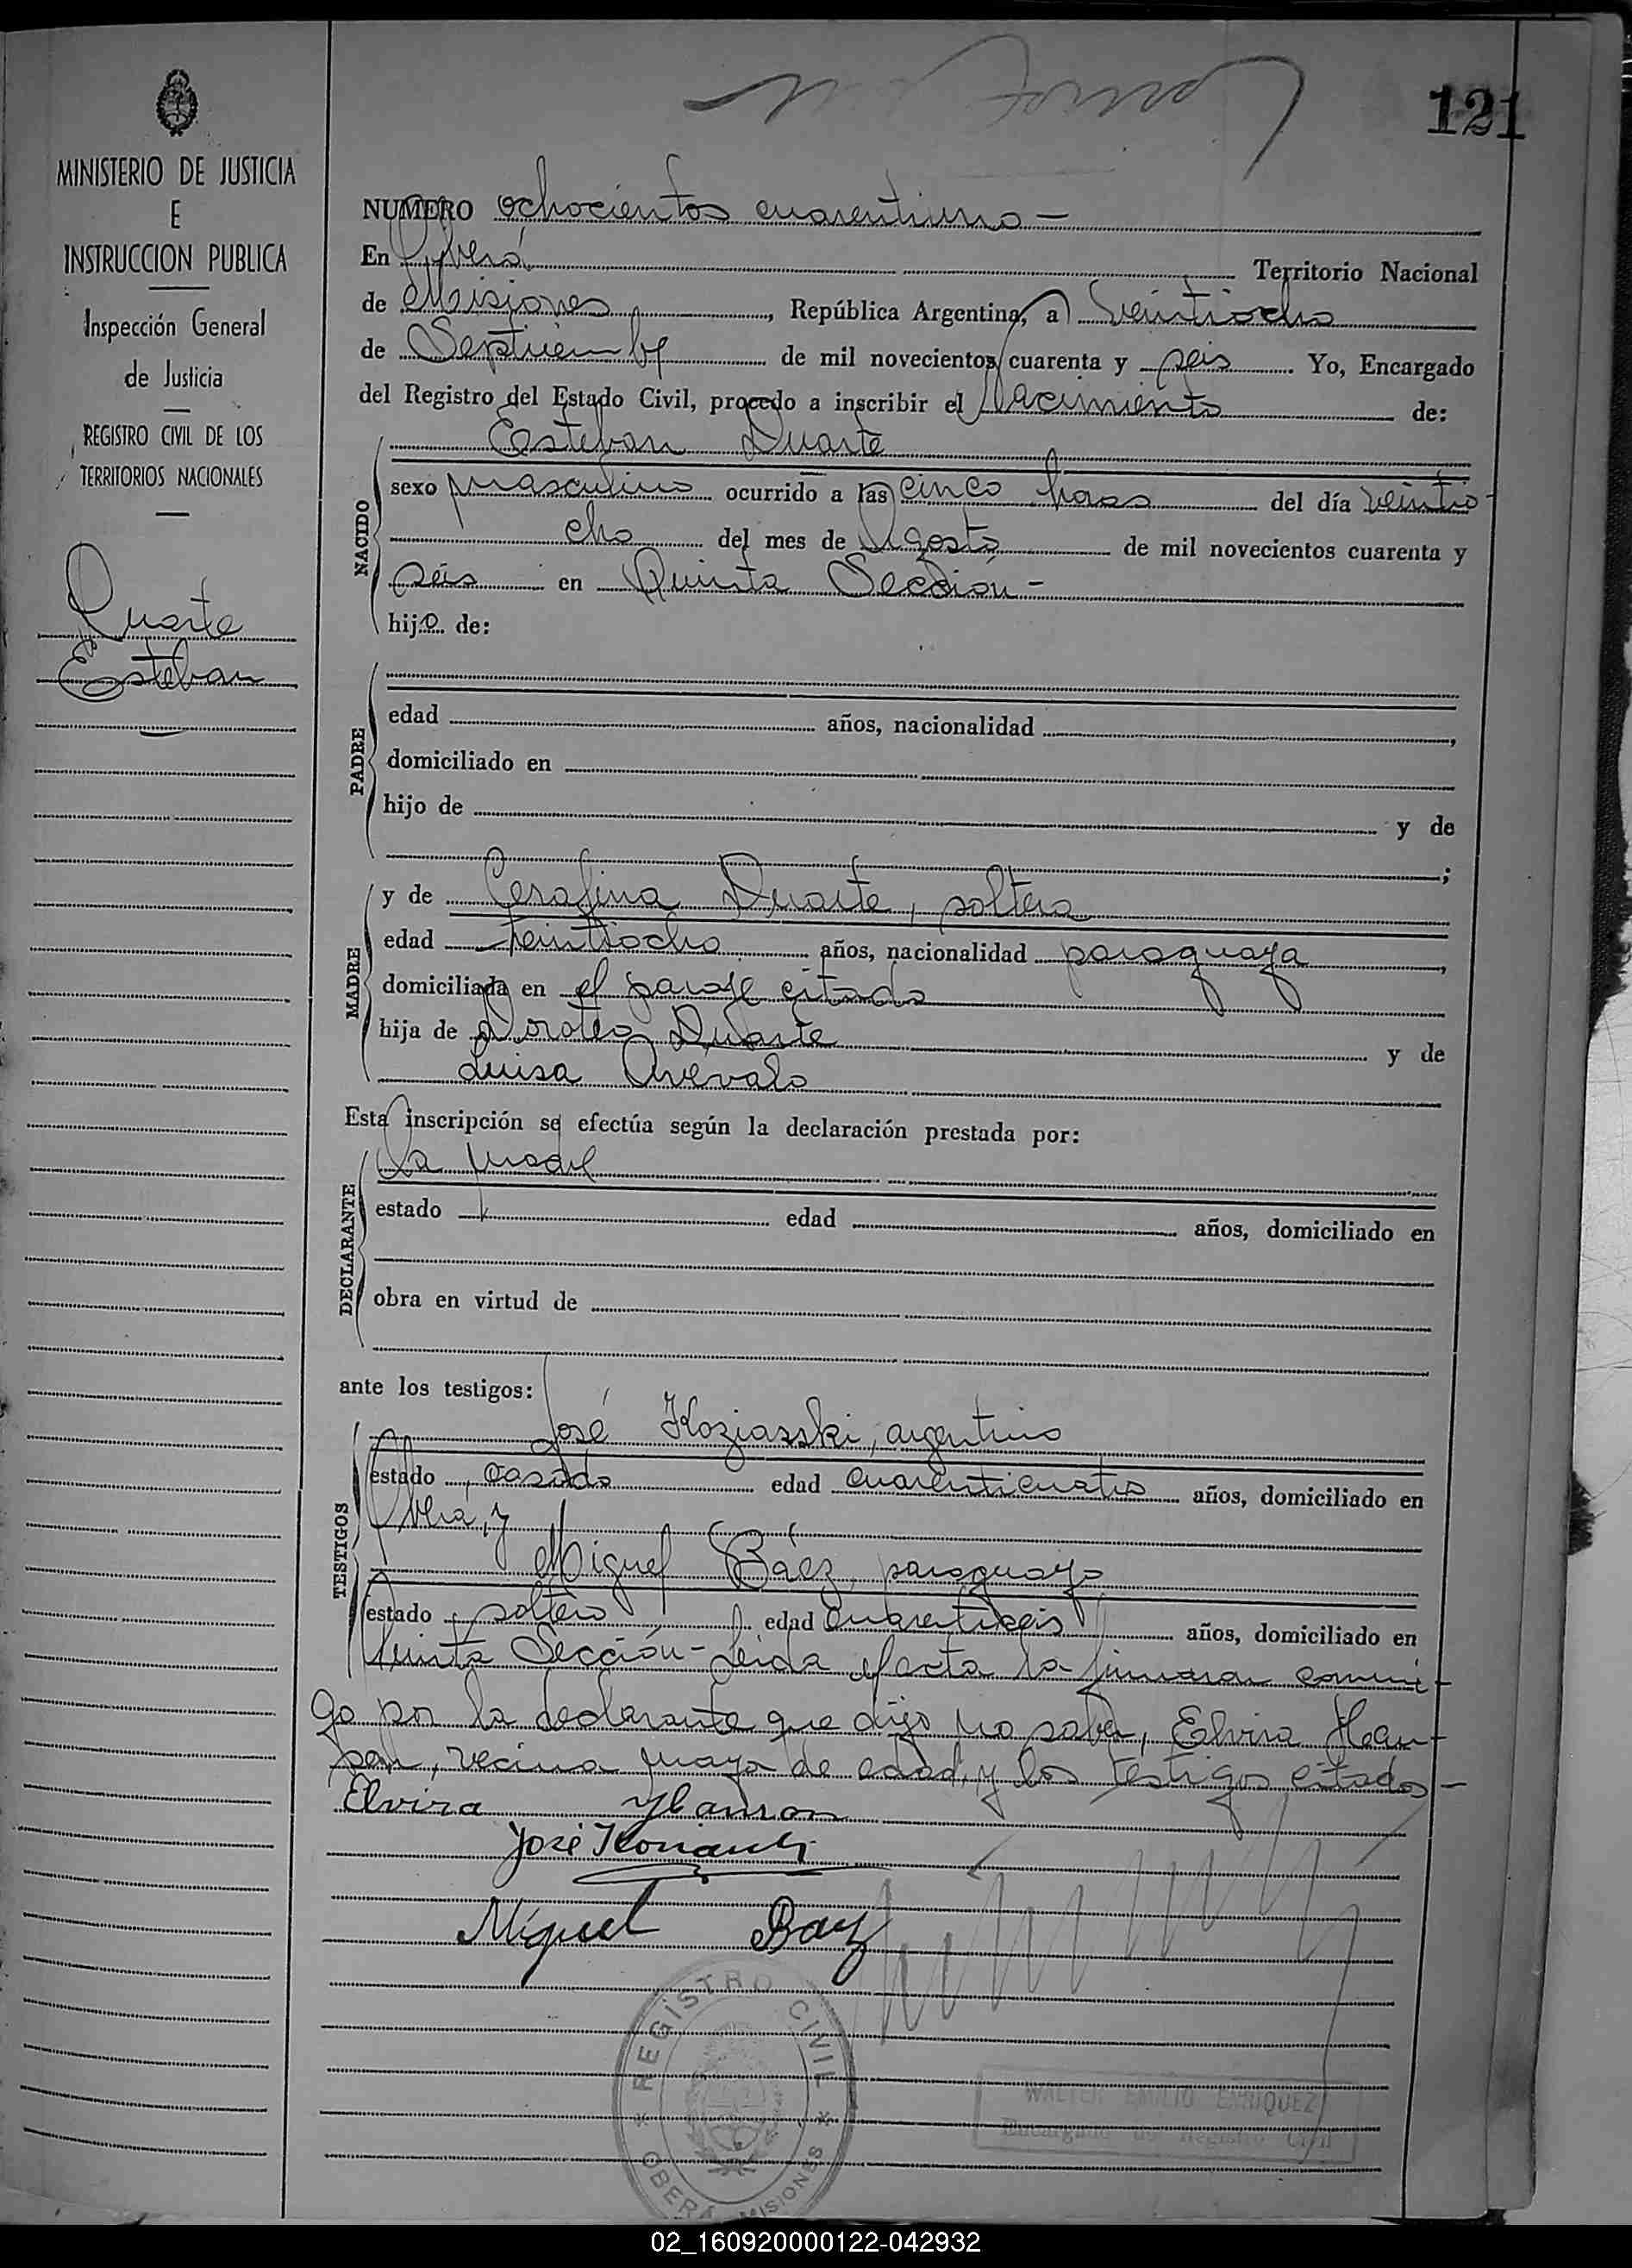 121
MINISTERIO DE JUSTICIA
E
INSTRUCCION PUBLICA
Inspección General
de Justicia
REGISTRO CIVIL DE LOS
TERRITORIOS NACIONALES
Duarte
Esteban
NUMERO ochocientos cuarentiuno -
En Oberá Territorio Nacional
de Misiones, República Argentina, a veintiocho
de Septiembre de mil novecientos cuarenta y seis. Yo, Encargado
del Registro del Estado Civil, procedo a inscribir el Nacimiento de:
NACIDO
Esteban Duarte
sexo masculino ocurrido a las cinco horas del día veintio-
cho del mes de Agosto de mil novecientos cuarenta y
seis en Quinta Sección -
hijo de:
PADRE
edad años, nacionalidad ,
domiciliado en
hijo de y de
;
MADRE
y de Cerafina Duarte, soltera
edad veintiocho años, nacionalidad paraguaya,
domiciliada en el paraje citado
hija de Doroteo Duarte y de
Luisa Arévalo
Esta inscripción se efectúa según la declaración prestada por:
DECLARANTE
la madre
estado edad años, domiciliado en
obra en virtud de
ante los testigos:
TESTIGOS
José Koziasski, argentino
estado casado edad cuarenticuatro años, domiciliado en
Oberá, y
Miguel Báez, paraguayo
estado soltero edad cuarentiseis años, domiciliado en
Quinta Sección - Leida el acta la firmaron conmi-
go por la declarante que dijo no saber, Elvira Han-
son, vecina mayor de edad, y los testigos citados -
Elvira Hanson
José
Miguel Baez
REGISTRO CIVIL
OBERÁ MISIONES
WALTER EMILIO ENRIQUEZ
Encargado de Registro Civil
02_160920000122-042932